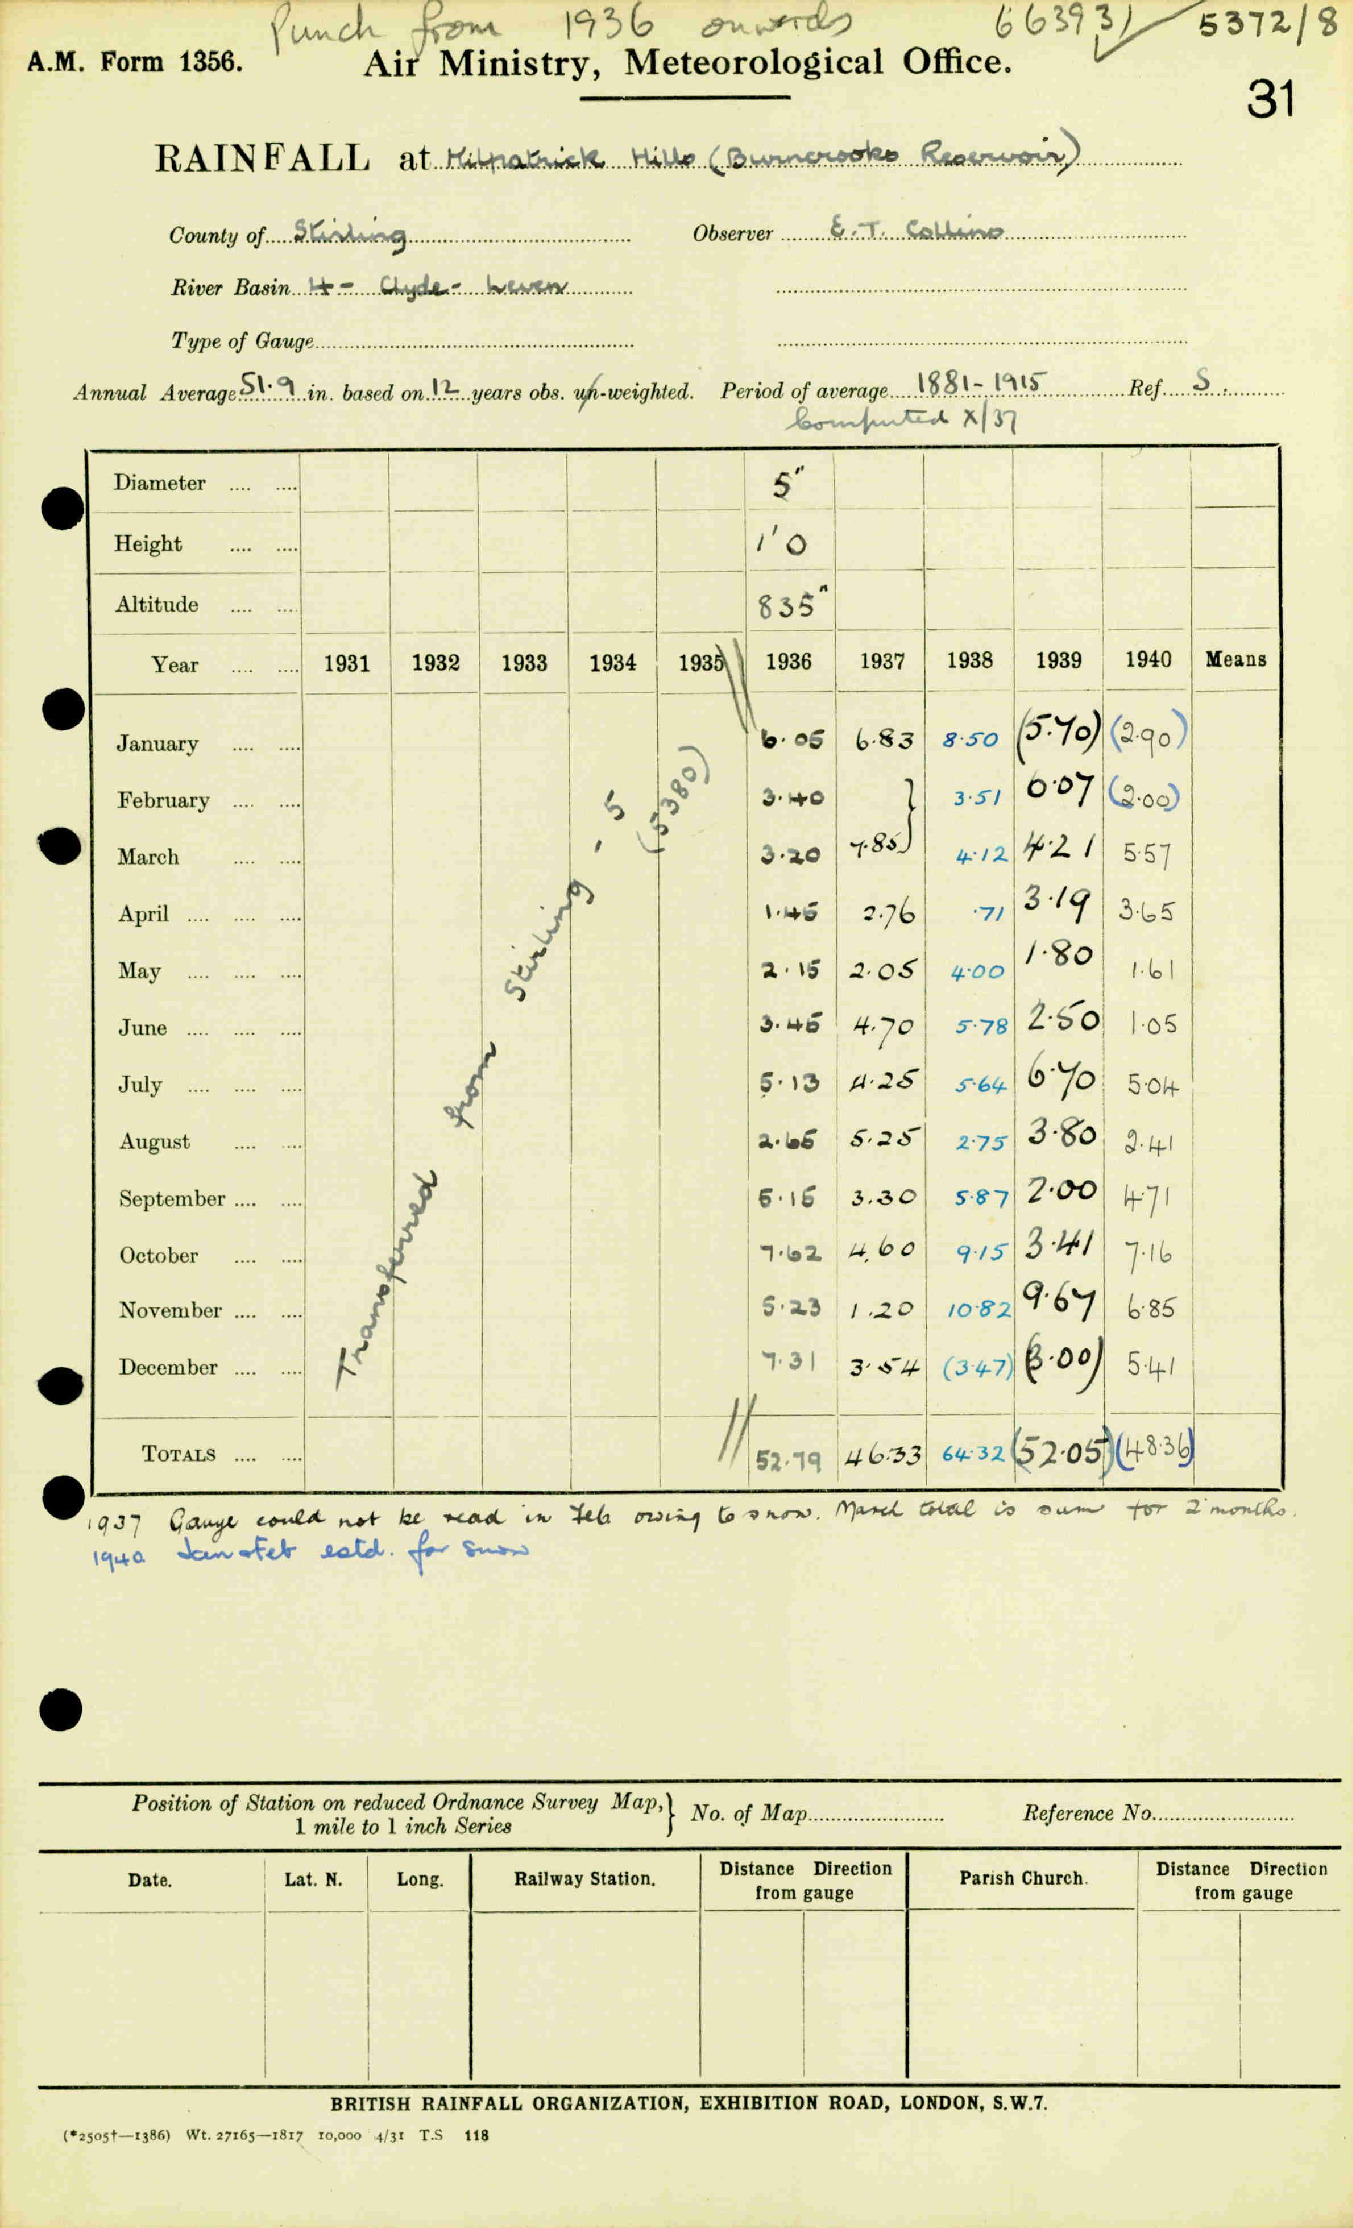 Punch from 1936 onwards 663931 ✓ 5372/8
A.M. Form 1356. Air Ministry, Meteorological Office.
31
RAINFALL at Kilpatrick Hills (Burncrooks Reservoir)
County of Stirling Observer E. T. Collins
River Basin 4 - Clyde - Leven
Type of Gauge
Annual Average 51.9 in. based on 12 years obs. un-weighted. Period of average 1881-1915 Ref. S.
Computed X/37
Diameter 5"
Height 1'0
Altitude 835"
Year 1931 1932 1933 1934 1935 1936 1937 1938 1939 1940 Means
January 6.05 6.83 8.50 (5.70) (2.90)
February 3.40 } 3.51 6.07 (2.00)
March 3.20 7.85 4.12 4.21 5.57
April 1.45 2.76 .71 3.19 3.65
May 2.15 2.05 4.00 1.80 1.61
June 3.45 4.70 5.78 2.50 1.05
July 5.13 4.25 5.64 6.70 5.04
August 2.65 5.25 2.75 3.80 2.41
September 5.15 3.30 5.87 2.00 4.71
October 7.62 4.60 9.15 3.41 7.16
November 5.23 1.20 10.82 9.67 6.85
December 7.31 3.54 (3.47) (3.00) 5.41
TOTALS 52.79 46.33 64.32 (52.05) (48.36)
Transferred from Stirling - 5 (5380)
1937 Gauge could not be read in Feb owing to snow. March total is sum for 2 months.
1940 Jan & Feb estd. for snow
Position of Station on reduced Ordnance Survey Map, 1 mile to 1 inch Series } No. of Map Reference No.
Date. Lat. N. Long. Railway Station. Distance Direction from gauge Parish Church. Distance Direction from gauge
BRITISH RAINFALL ORGANIZATION, EXHIBITION ROAD, LONDON, S.W.7.
(*2505†—1386) Wt. 27165—1817 10,000 4/31 T.S 118